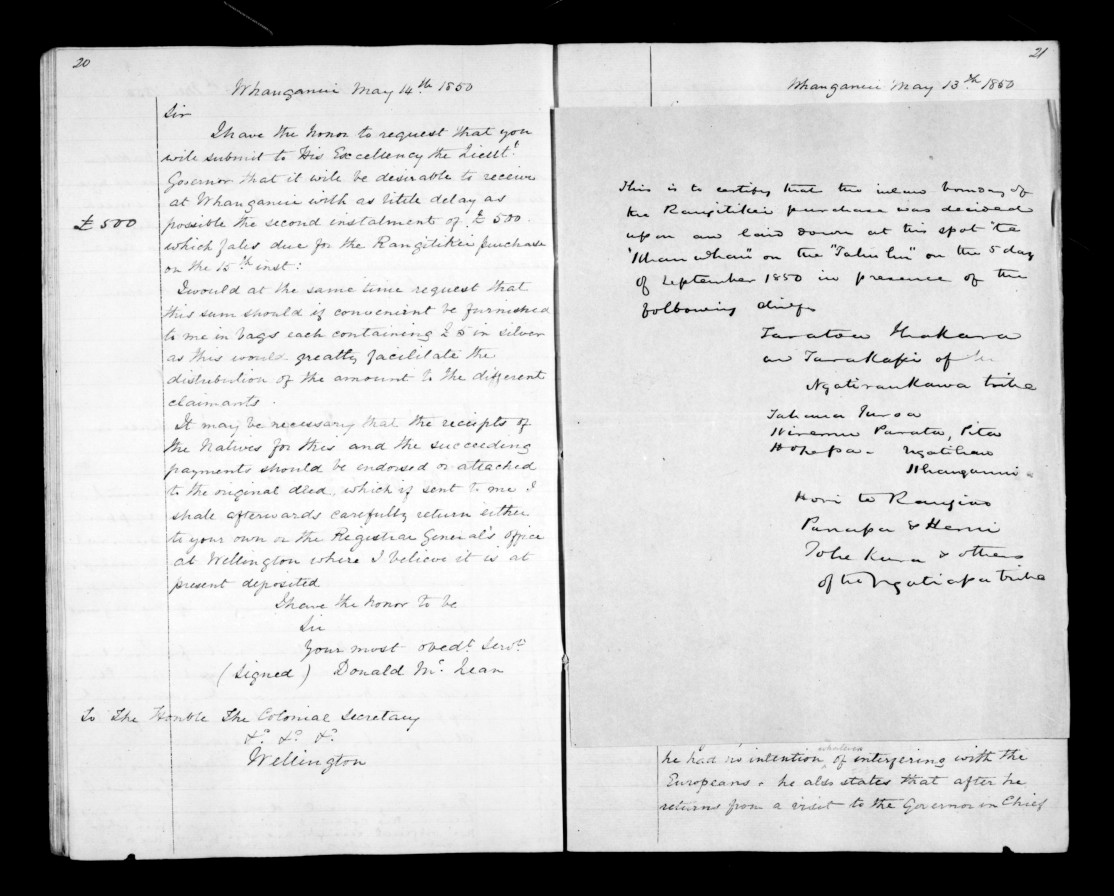 20
Whanganui May 14th 1850
Sir
I have the honor to request that you
will submit to His Excellency the Lieut!
Governor that it will be desirable to receive
at Whanganui with as little delay as
£500
possible the second instalment of £500.
which falls due for the Rangitikei purchase
on the 15th inst:
I would at the same time request that
this sum should if convenient be furnished
to me in bags each containing 25 in silver
as this would greatly facilitate the
distribution of the amount to the different
claimants.
It may be necessary that the receipts of
the Natives for this and the succeeding
payments should be endorsed or attached
to the original deed, which if sent to me I
shall afterwards carefully return either
to your own or the Registrar General's Office
at Wellington where I believe it is at
present deposited
I have the honor to be
Sir
Your most obedt. Servt.
(Signed) Donald Mc. Lean
To The Honble The Colonial Secretary
&c. &c. &c.
Wellington
21
Whanganui May 13th 1850
This is to certify that the inland boundary of
the Rangitikei purchase was decided
upon and laid down at this spot "te
on the 5 day
of September 1850 in presence of the
following chiefs
Taratoa Ihakara
an Tarakapi of
Ngatiraukawa tribe
Tahana Turoa
Wiremu Parata, Pita
Hopepa - Ngatihau
Whanganui -
Hori te Rangiao
Panapa & Hemi
Tohe Kura & others
of the Ngatiapa tribe
he had no intention whatever of interfering with the
Europeans. he also states that after he
returns from a visit to the Governor in Chief